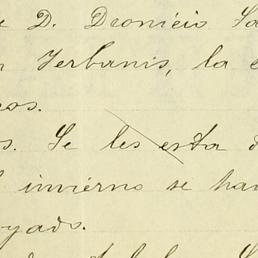 D. Dionicio
Yerbanis, la
os.
s. Se les esta
invierno se ha
yado.